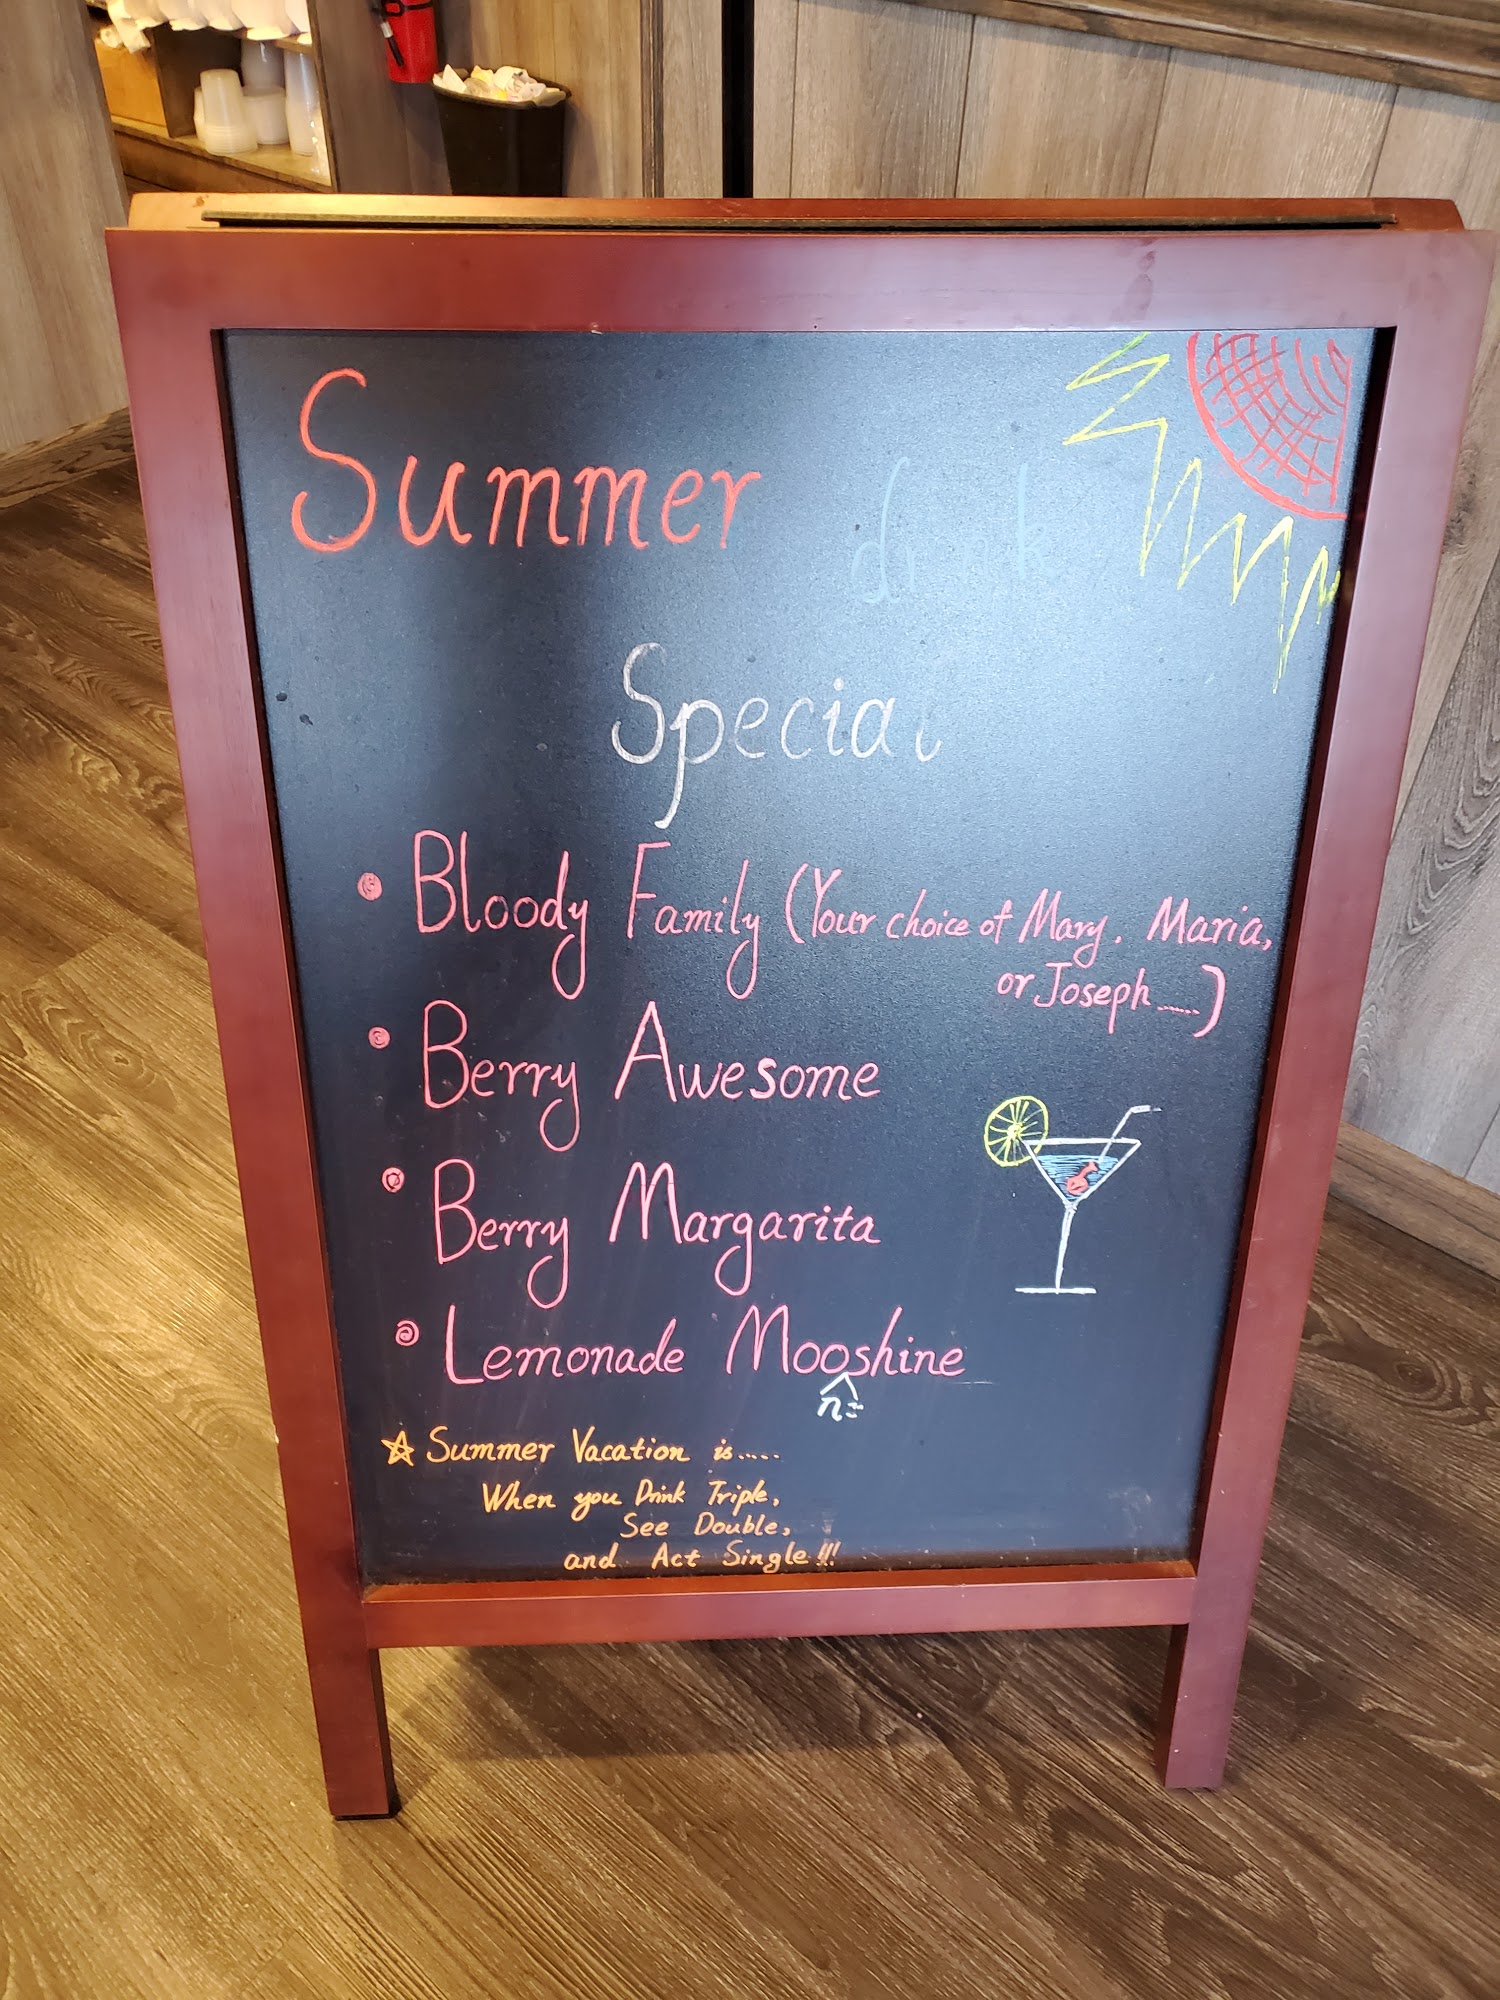 Summer drink
Special
• Bloody Family (Your choice of Mary. Maria,
or Joseph......)
• Berry Awesome
• Berry Margarita
• Lemonade Mooshine
n
☆ Summer Vacation is.....
When you Drink Triple,
See Double,
and Act Single!!!